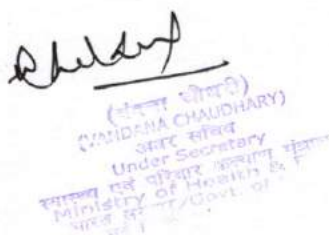 (वंदना चौधरी)
(VANDANA CHAUDHARY)
अवर सचिव
Under Secretary
स्वास्थ्य एवं परिवार कल्याण मंत्रालय
Ministry of Health &
भारत सरकार/Govt. of